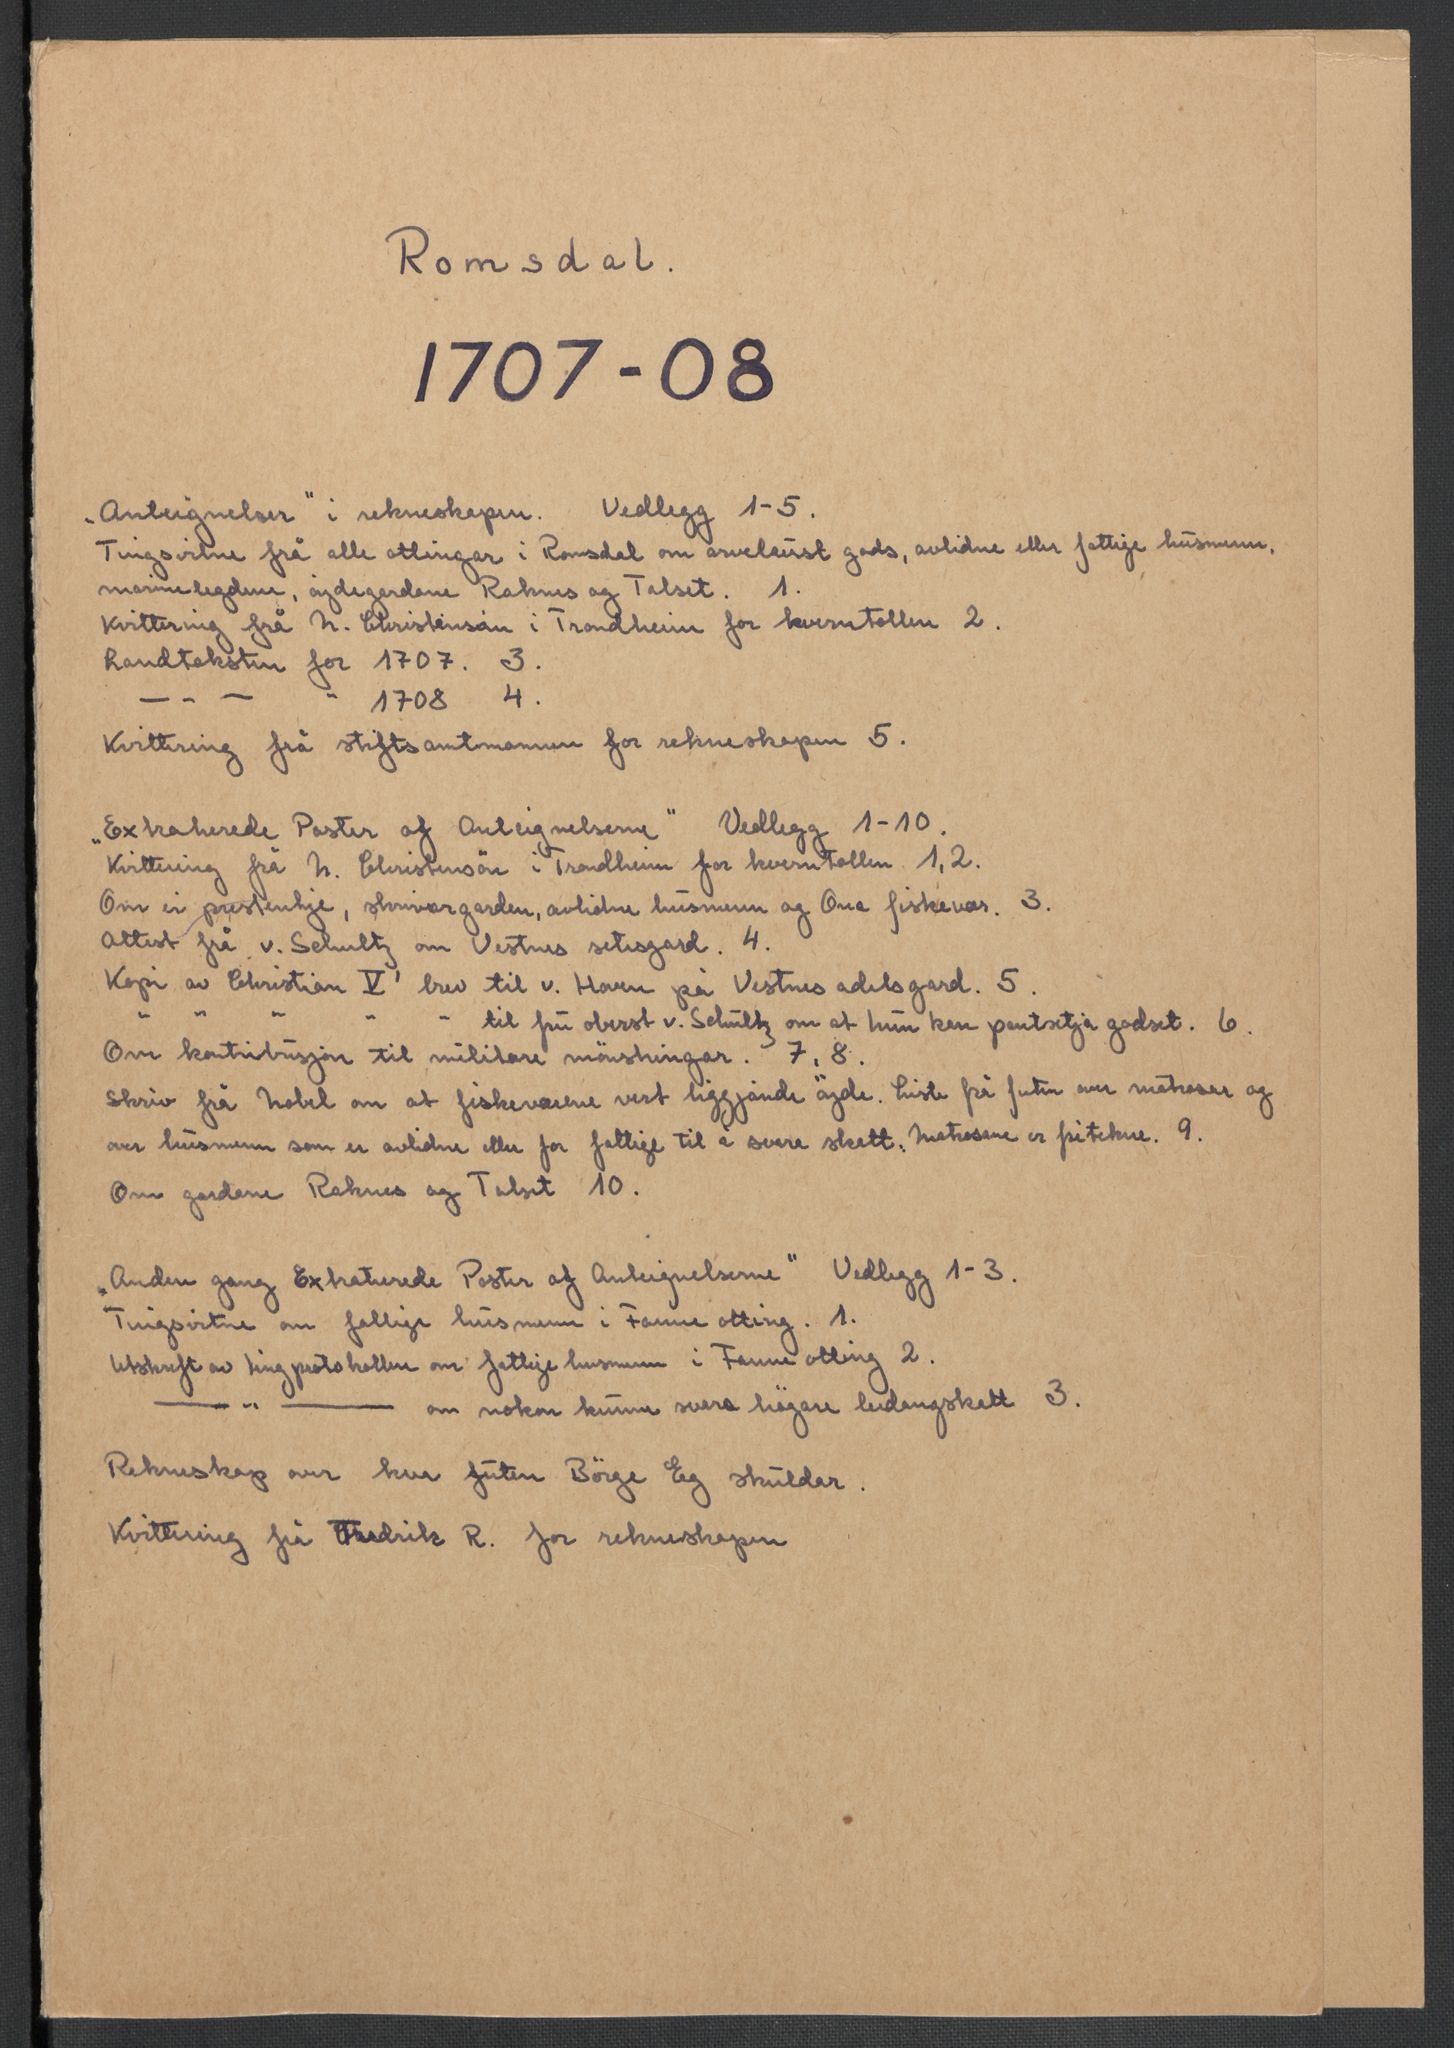 Romsdal.
1707-08
„Anteignelser" i rekneskapen. Vedlegg 1-5.
Tingsvitne frå alle ottingar i Romsdal om arvelaust gods, avlidne eller fattige husmenn,
marinelegdene, øydegardane Raknes og Talset. 1.
Kvittering frå N. Christensøn i Trondheim for kverntollen 2.
Landtaksten for 1707. 3.
— " — " 1708 4.
Kvittering frå stiftsamtmannen for rekneskapen 5.
„Extraherede Poster af Anteignelserne" Vedlegg 1-10.
Kvittering frå N. Christensøn i Trondheim for kverntollen 1,2.
Om ei prestenkje, skrivargarden, avlidne husmenn og Ona fiskevær. 3.
Attest frå v. Schultz om Vestnes setesgard. 4.
Kopi av Christian V' brev til v. Hoven på Vestnes adelsgard. 5.
" " " " " til fru oberst v. Schultz om at hun kan pantsetja godset. 6.
Om kontribusjon til militære mönstringar. 7, 8.
Skriv frå Nobel om at fiskeværene vert liggjande öyde. Liste frå futen over matrosar og
over husmenn som er avlidne eller for fattige til å svare skatt. Matrosane er fritekne. 9.
Om gardane Raknes og Talset 10.
„Anden gang Extraherede Poster af Anteignelserne" Vedlegg 1-3.
Tingsvitne om fattige husmenn i Fanne otting. 1.
Utskrift av tingprotokollen om fattige husmenn i Fanne otting 2.
— " — om nokon kunne svara högare leidangskatt 3.
Rekneskap over kva futen Börge Eg skuldar.
Kvittering frå Fredrik R. for rekneskapen